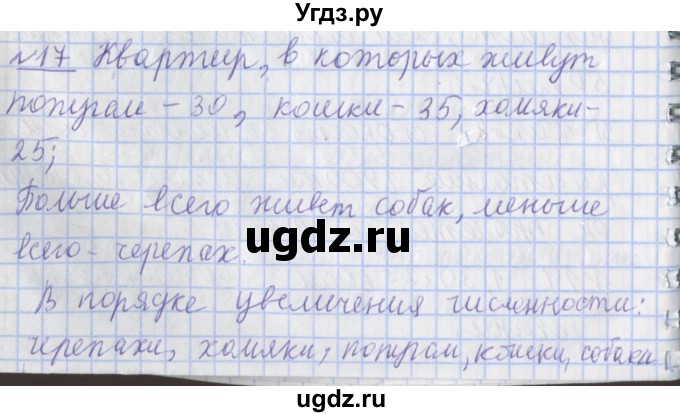 Угдз.ру
№17 Квартир, в которых живут
попугаи - 30, кошки - 35, хомяки -
25;
Больше всего живет собак, меньше
всего - черепах.
ugdz.ru
В порядке увеличения численности:
черепахи, хомяки, попугаи, кошки, собаки
ugdz.ru